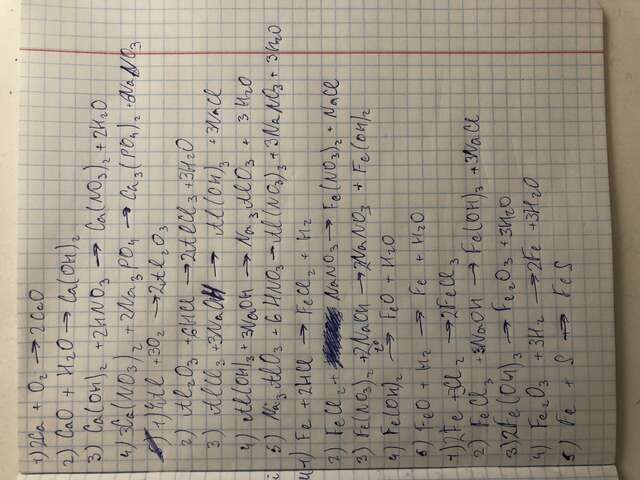 1) 2Ca + O2 → 2CaO
2) CaO + H2O → Ca(OH)2
3) Ca(OH)2 + 2HNO3 → Ca(NO3)2 + 2H2O
4) 3Ca(NO3)2 + 2Na3PO4 → Ca3(PO4)2 + 6NaNO3
1) 4Al + 3O2 → 2Al2O3
2) Al2O3 + 6HCl → 2AlCl3 + 3H2O
3) AlCl3 + 3NaOH → Al(OH)3 + 3NaCl
4) Al(OH)3 + 3NaOH → Na3AlO3 + 3H2O
5) Na3AlO3 + 6HNO3 → Al(NO3)3 + 3NaNO3 + 3H2O
1) Fe + 2HCl → FeCl2 + H2
2) FeCl2 + NaNO3 → Fe(NO3)2 + NaCl
3) Fe(NO3)2 + 2NaOH → 2NaNO3 + Fe(OH)2
4) Fe(OH)2 → FeO + H2O
5) FeO + H2 → Fe + H2O
1) 2Fe + Cl2 → 2FeCl3
2) FeCl3 + 3NaOH → Fe(OH)3 + 3NaCl
3) 2Fe(OH)3 → Fe2O3 + 3H2O
4) Fe2O3 + 3H2 → 2Fe + 3H2O
5) Fe + S → FeS